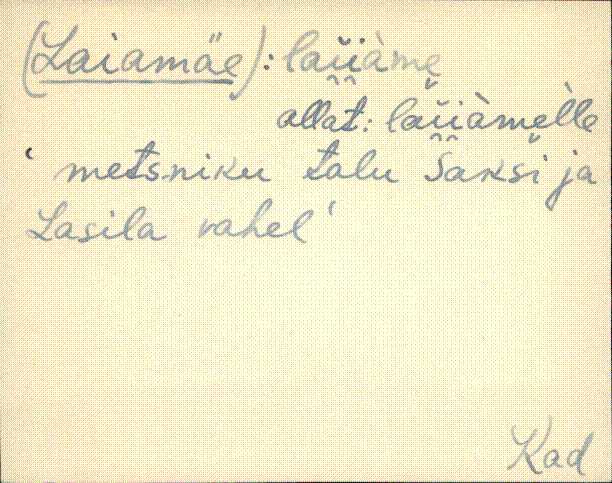 (Laiamäe): laiiàme
allat: laiiàmèlle
‘metsniku talu Saksi ja
Lasila vahel’
Kad